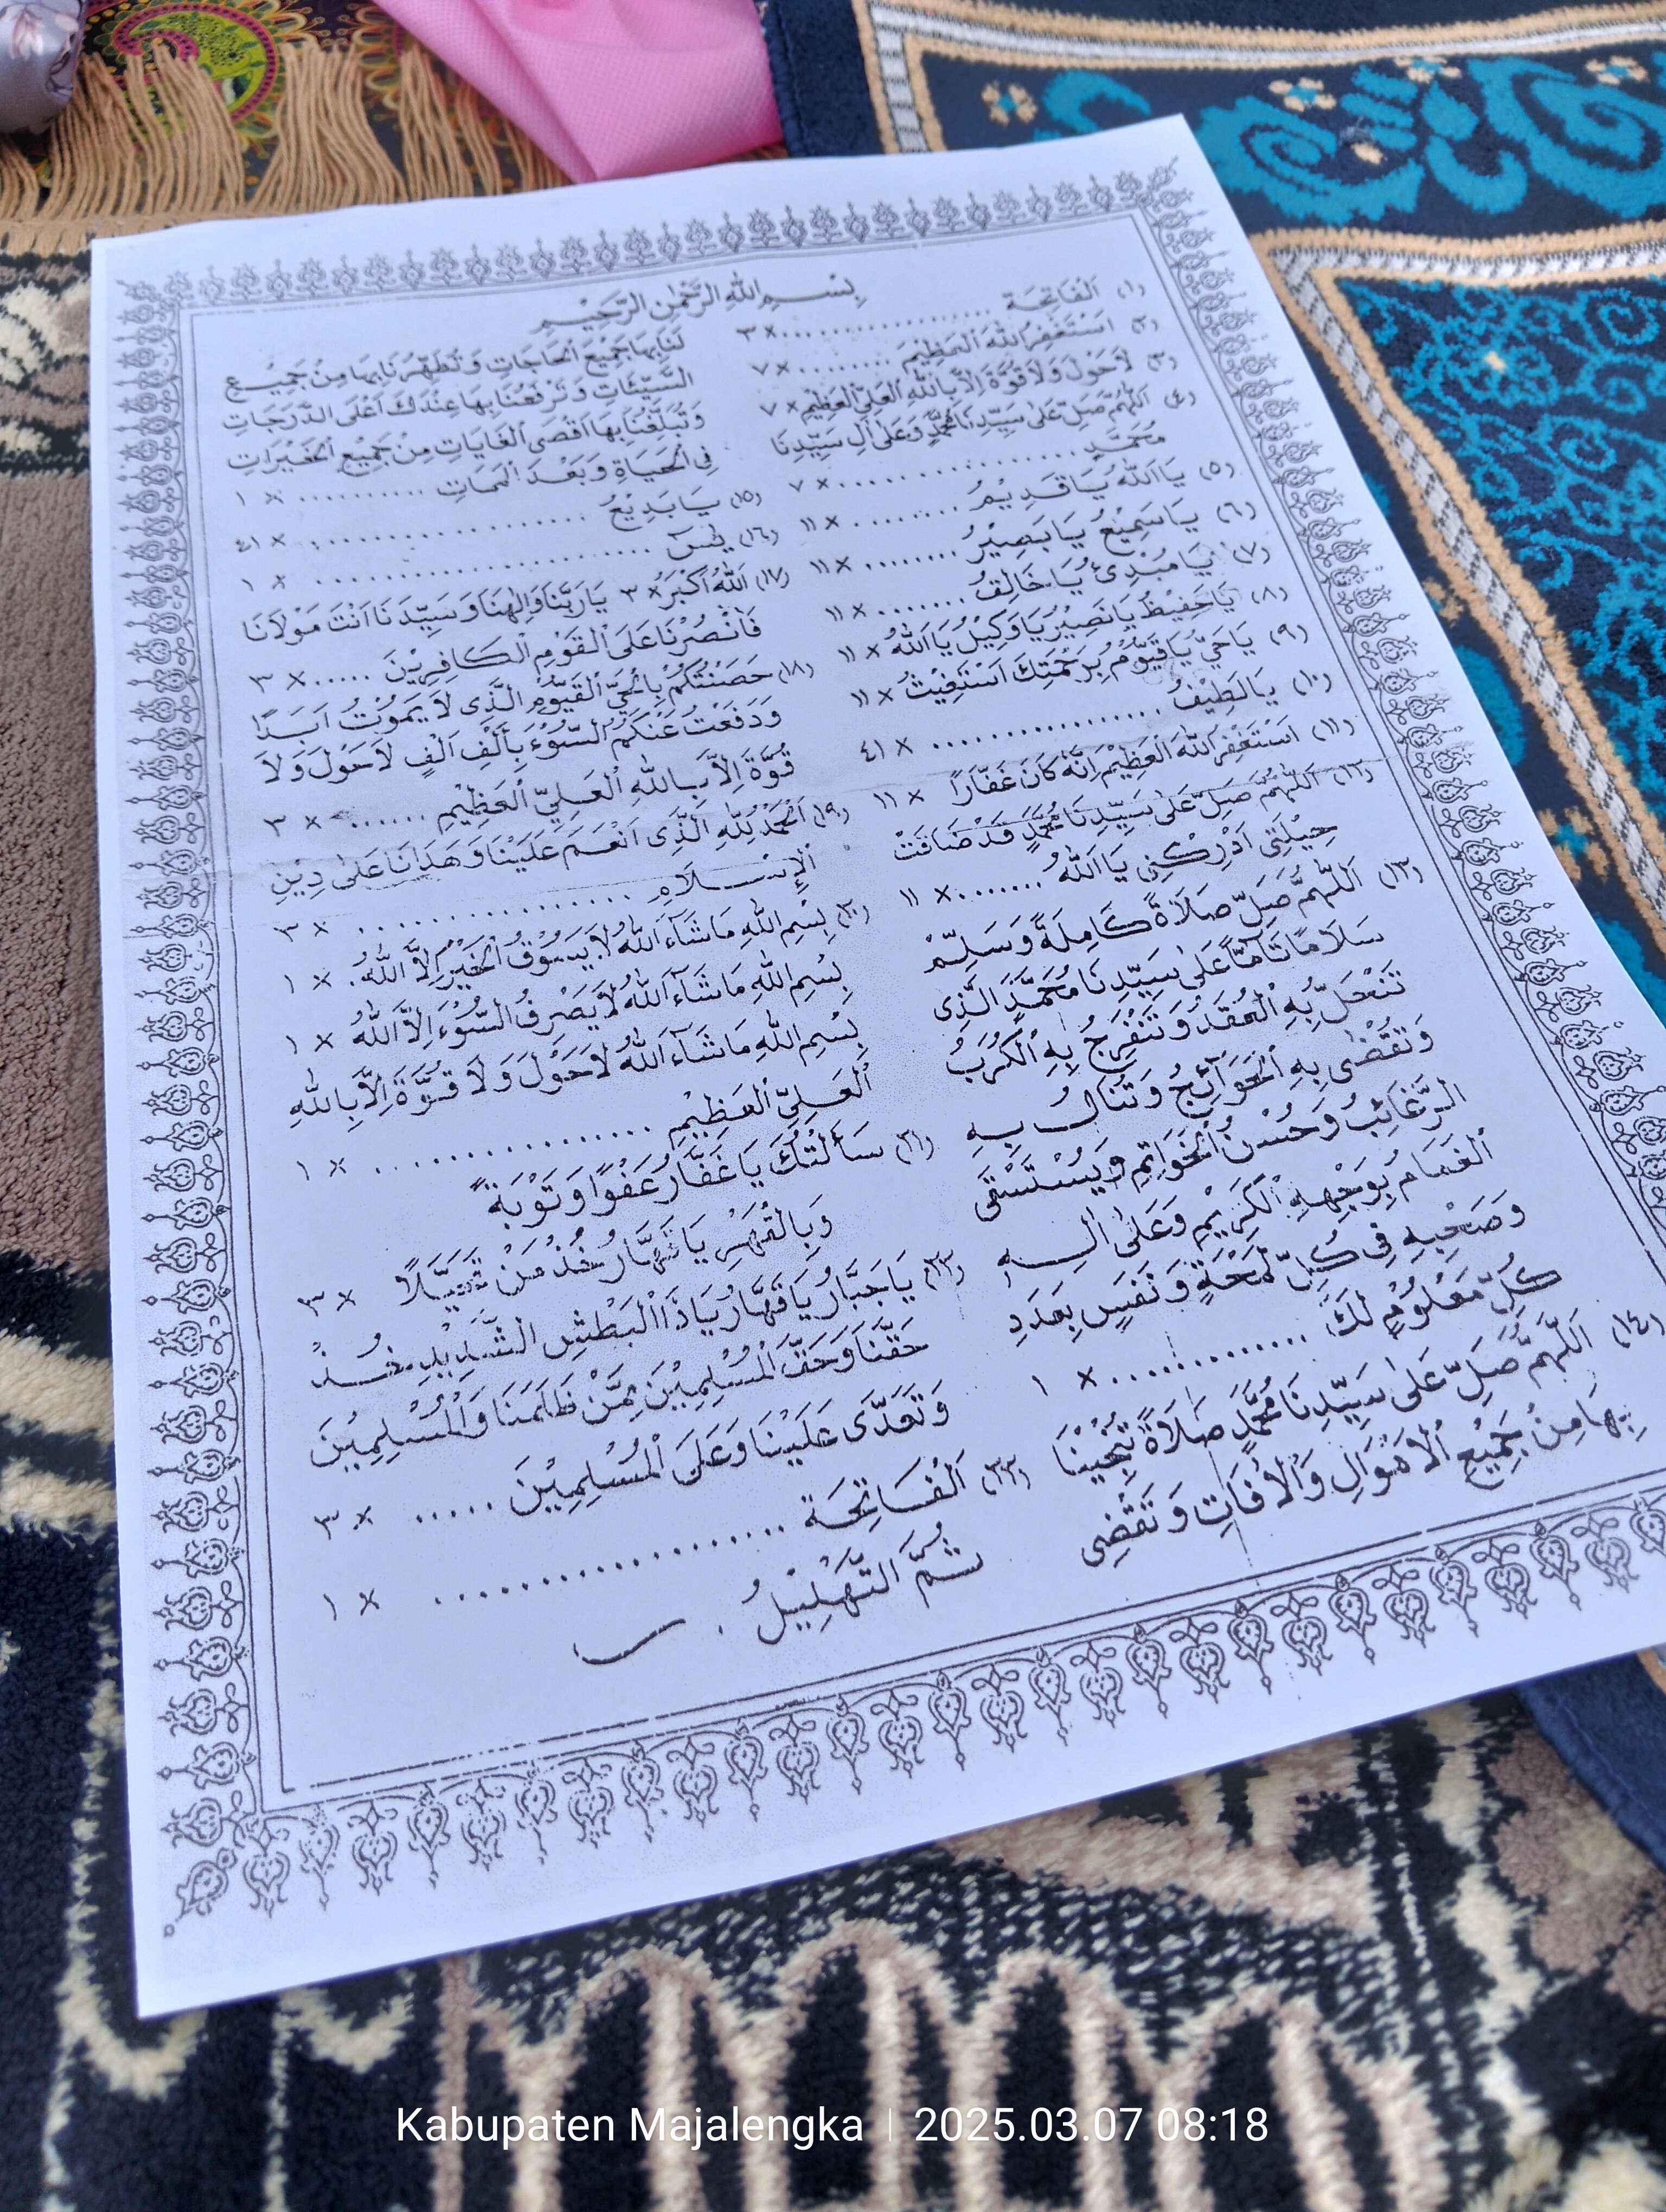 بِسْمِ اللهِ الرَّحْمٰنِ الرَّحِيْمِ
(١) اَلْفَاتِحَة .................. × ٣
(٢) اَسْتَغْفِرُ اللهَ الْعَظِيْمَ ......... × ٧
(٣) لَاحَوْلَ وَلَا قُوَّةَ اِلَّا بِاللهِ الْعَلِيِّ الْعَظِيْمِ × ٧
(٤) اَللّٰهُمَّ صَلِّ عَلَى سَيِّدِنَا مُحَمَّدٍ وَعَلَى اٰلِ سَيِّدِنَا
مُحَمَّدٍ .................. × ٧
(٥) يَا اَللهُ يَا قَدِيْمُ ......... × ١١
(٦) يَا سَمِيْعُ يَا بَصِيْرُ ........ × ١١
(٧) يَا مُبْدِئُ يَا خَالِقُ ........ × ١١
(٨) يَا حَفِيْظُ يَا نَصِيْرُ يَا وَكِيْلُ يَا اَللهُ × ١١
(٩) يَا حَيُّ يَا قَيُّوْمُ بِرَحْمَتِكَ اَسْتَغِيْثُ × ١١
(١٠) يَا لَطِيْفُ ................ × ٤١
(١١) اَسْتَغْفِرُ اللهَ الْعَظِيْمَ اِنَّهُ كَانَ غَفَّارًا × ١١
(١٢) اَللّٰهُمَّ صَلِّ عَلَى سَيِّدِنَا مُحَمَّدٍ قَدْ ضَاقَتْ
حِيْلَتِى اَدْرِكْنِى يَا اَللهُ ........ × ١١
(١٣) اَللّٰهُمَّ صَلِّ صَلَاةً كَامِلَةً وَسَلِّمْ
سَلَامًا تَامًّا عَلَى سَيِّدِنَا مُحَمَّدٍ الَّذِى
تَنْحَلُّ بِهِ الْعُقَدُ وَتَنْفَرِجُ بِهِ الْكُرَبُ
وَتُقْضٰى بِهِ الْحَوَائِجُ وَتُنَالُ بِهِ
الرَّغَائِبُ وَحُسْنُ الْخَوَاتِمِ وَيُسْتَسْقَى
الْغَمَامُ بِوَجْهِهِ الْكَرِيْمِ وَعَلَى اٰلِهِ
وَصَحْبِهِ فِى كُلِّ لَمْحَةٍ وَنَفَسٍ بِعَدَدِ
كُلِّ مَعْلُوْمٍ لَكَ .............. × ١
(١٤) اَللّٰهُمَّ صَلِّ عَلَى سَيِّدِنَا مُحَمَّدٍ صَلَاةً تُنْجِيْنَا
بِهَا مِنْ جَمِيْعِ الْاَهْوَالِ وَالْاٰفَاتِ وَتَقْضِى
لَنَا بِهَا جَمِيْعَ الْحَاجَاتِ وَتُطَهِّرُنَا بِهَا مِنْ جَمِيْعِ
السَّيِّئَاتِ وَتَرْفَعُنَا بِهَا عِنْدَكَ اَعْلَى الدَّرَجَاتِ
وَتُبَلِّغُنَا بِهَا اَقْصَى الْغَايَاتِ مِنْ جَمِيْعِ الْخَيْرَاتِ
فِى الْحَيَاةِ وَبَعْدَ الْمَمَاتِ ........... × ١
(١٥) يَا بَدِيْعُ .................. × ٤١
(١٦) يٰسٓ .................. × ١
(١٧) اَللهُ اَكْبَرُ × ٣ يَا رَبَّنَا وَاِلٰهَنَا وَسَيِّدَنَا اَنْتَ مَوْلَانَا
فَانْصُرْنَا عَلَى الْقَوْمِ الْكَافِرِيْنَ ..... × ٣
(١٨) حَصَنْتُكُمْ بِالْحَيِّ الْقَيُّوْمِ الَّذِى لَا يَمُوْتُ اَبَدًا
وَدَفَعْتُ عَنْكُمُ السُّوْءَ بِاَلْفِ اَلْفِ لَاحَوْلَ وَلَا
قُوَّةَ اِلَّا بِاللهِ الْعَلِيِّ الْعَظِيْمِ ....... × ٣
(١٩) اَلْحَمْدُ لِلّٰهِ الَّذِى اَنْعَمَ عَلَيْنَا وَهَدَانَا عَلَى دِيْنِ
الْاِسْلَامِ ................ × ٣
(٢٠) بِسْمِ اللهِ مَاشَآءَ اللهُ لَا يَسُوْقُ الْخَيْرَ اِلَّا اللهُ . × ١
بِسْمِ اللهِ مَاشَآءَ اللهُ لَا يَصْرِفُ السُّوْءَ اِلَّا اللهُ × ١
بِسْمِ اللهِ مَاشَآءَ اللهُ لَاحَوْلَ وَلَا قُوَّةَ اِلَّا بِاللهِ
الْعَلِيِّ الْعَظِيْمِ ................ × ١
(٢١) سَأَلْتُكَ يَا غَفَّارُ عَفْوًا وَتَوْبَةً
وَبِالْقَهْرِ يَا قَهَّارُ خُذْ مَنْ تَحَيَّلَا × ٣
(٢٢) يَا جَبَّارُ يَا قَهَّارُ يَا ذَا الْبَطْشِ الشَّدِيْدِ خُذْ
حَقَّنَا وَحَقَّ الْمُسْلِمِيْنَ مِمَّنْ ظَلَمَنَا وَالْمُسْلِمِيْنَ
وَتَعَدَّى عَلَيْنَا وَعَلَى الْمُسْلِمِيْنَ ..... × ٣
(٢٣) اَلْفَاتِحَة .................. × ١
ثُمَّ التَّهْلِيْلُ .
Kabupaten Majalengka | 2025.03.07 08:18